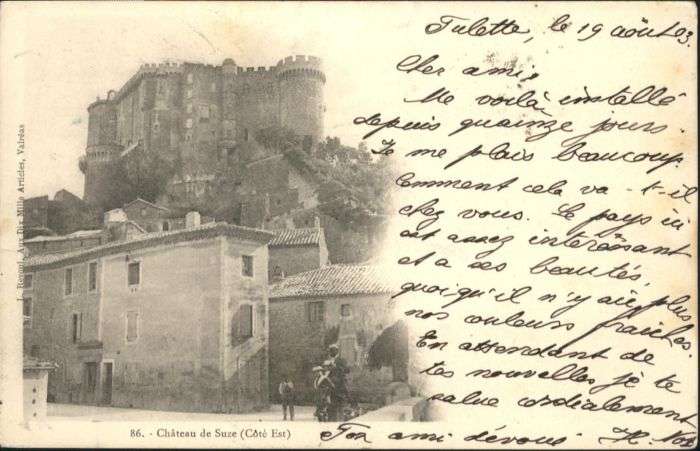 Tulette, le 19 août 03
Cher ami,
Me voilà installé
depuis quainze jours.
Je me plais beaucoup.
Comment cela va-t-il
chez vous. Le pays ici
est assez intéressant
et a ses beautés,
quoiqu'il n'y ait plus
nos couleurs fraiches.
En attendant de
tes nouvelles, je te
salue cordialement
Ton ami dévoué H.
86. - Château de Suze (Côté Est)
Aux Dix Mille Articles, Valréas